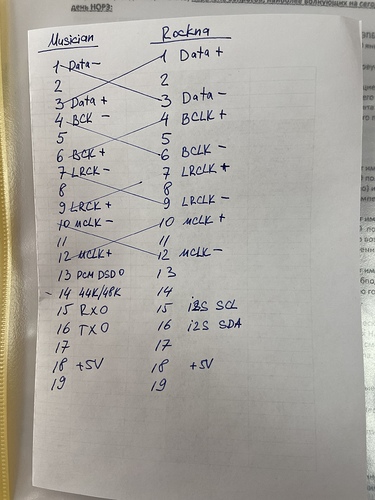 день НОРЭ:
Musician Rockna
1 Data- 1 Data +
2 2
3 Data + 3 Data -
4 BCK - 4 BCLK +
5 5
6 BCK + 6 BCLK -
7 LRCK - 7 LRCLK +
8 8
9 LRCK + 9 LRCLK -
10 MCLK - 10 MCLK +
11 11
12 MCLK+ 12 MCLK-
13 PCM DSD 0 13
14 44K/48K 14
15 RXO 15 i2S SCL
16 TXO 16 i2S SDA
17 17
18 +5V 18 +5V
19 19